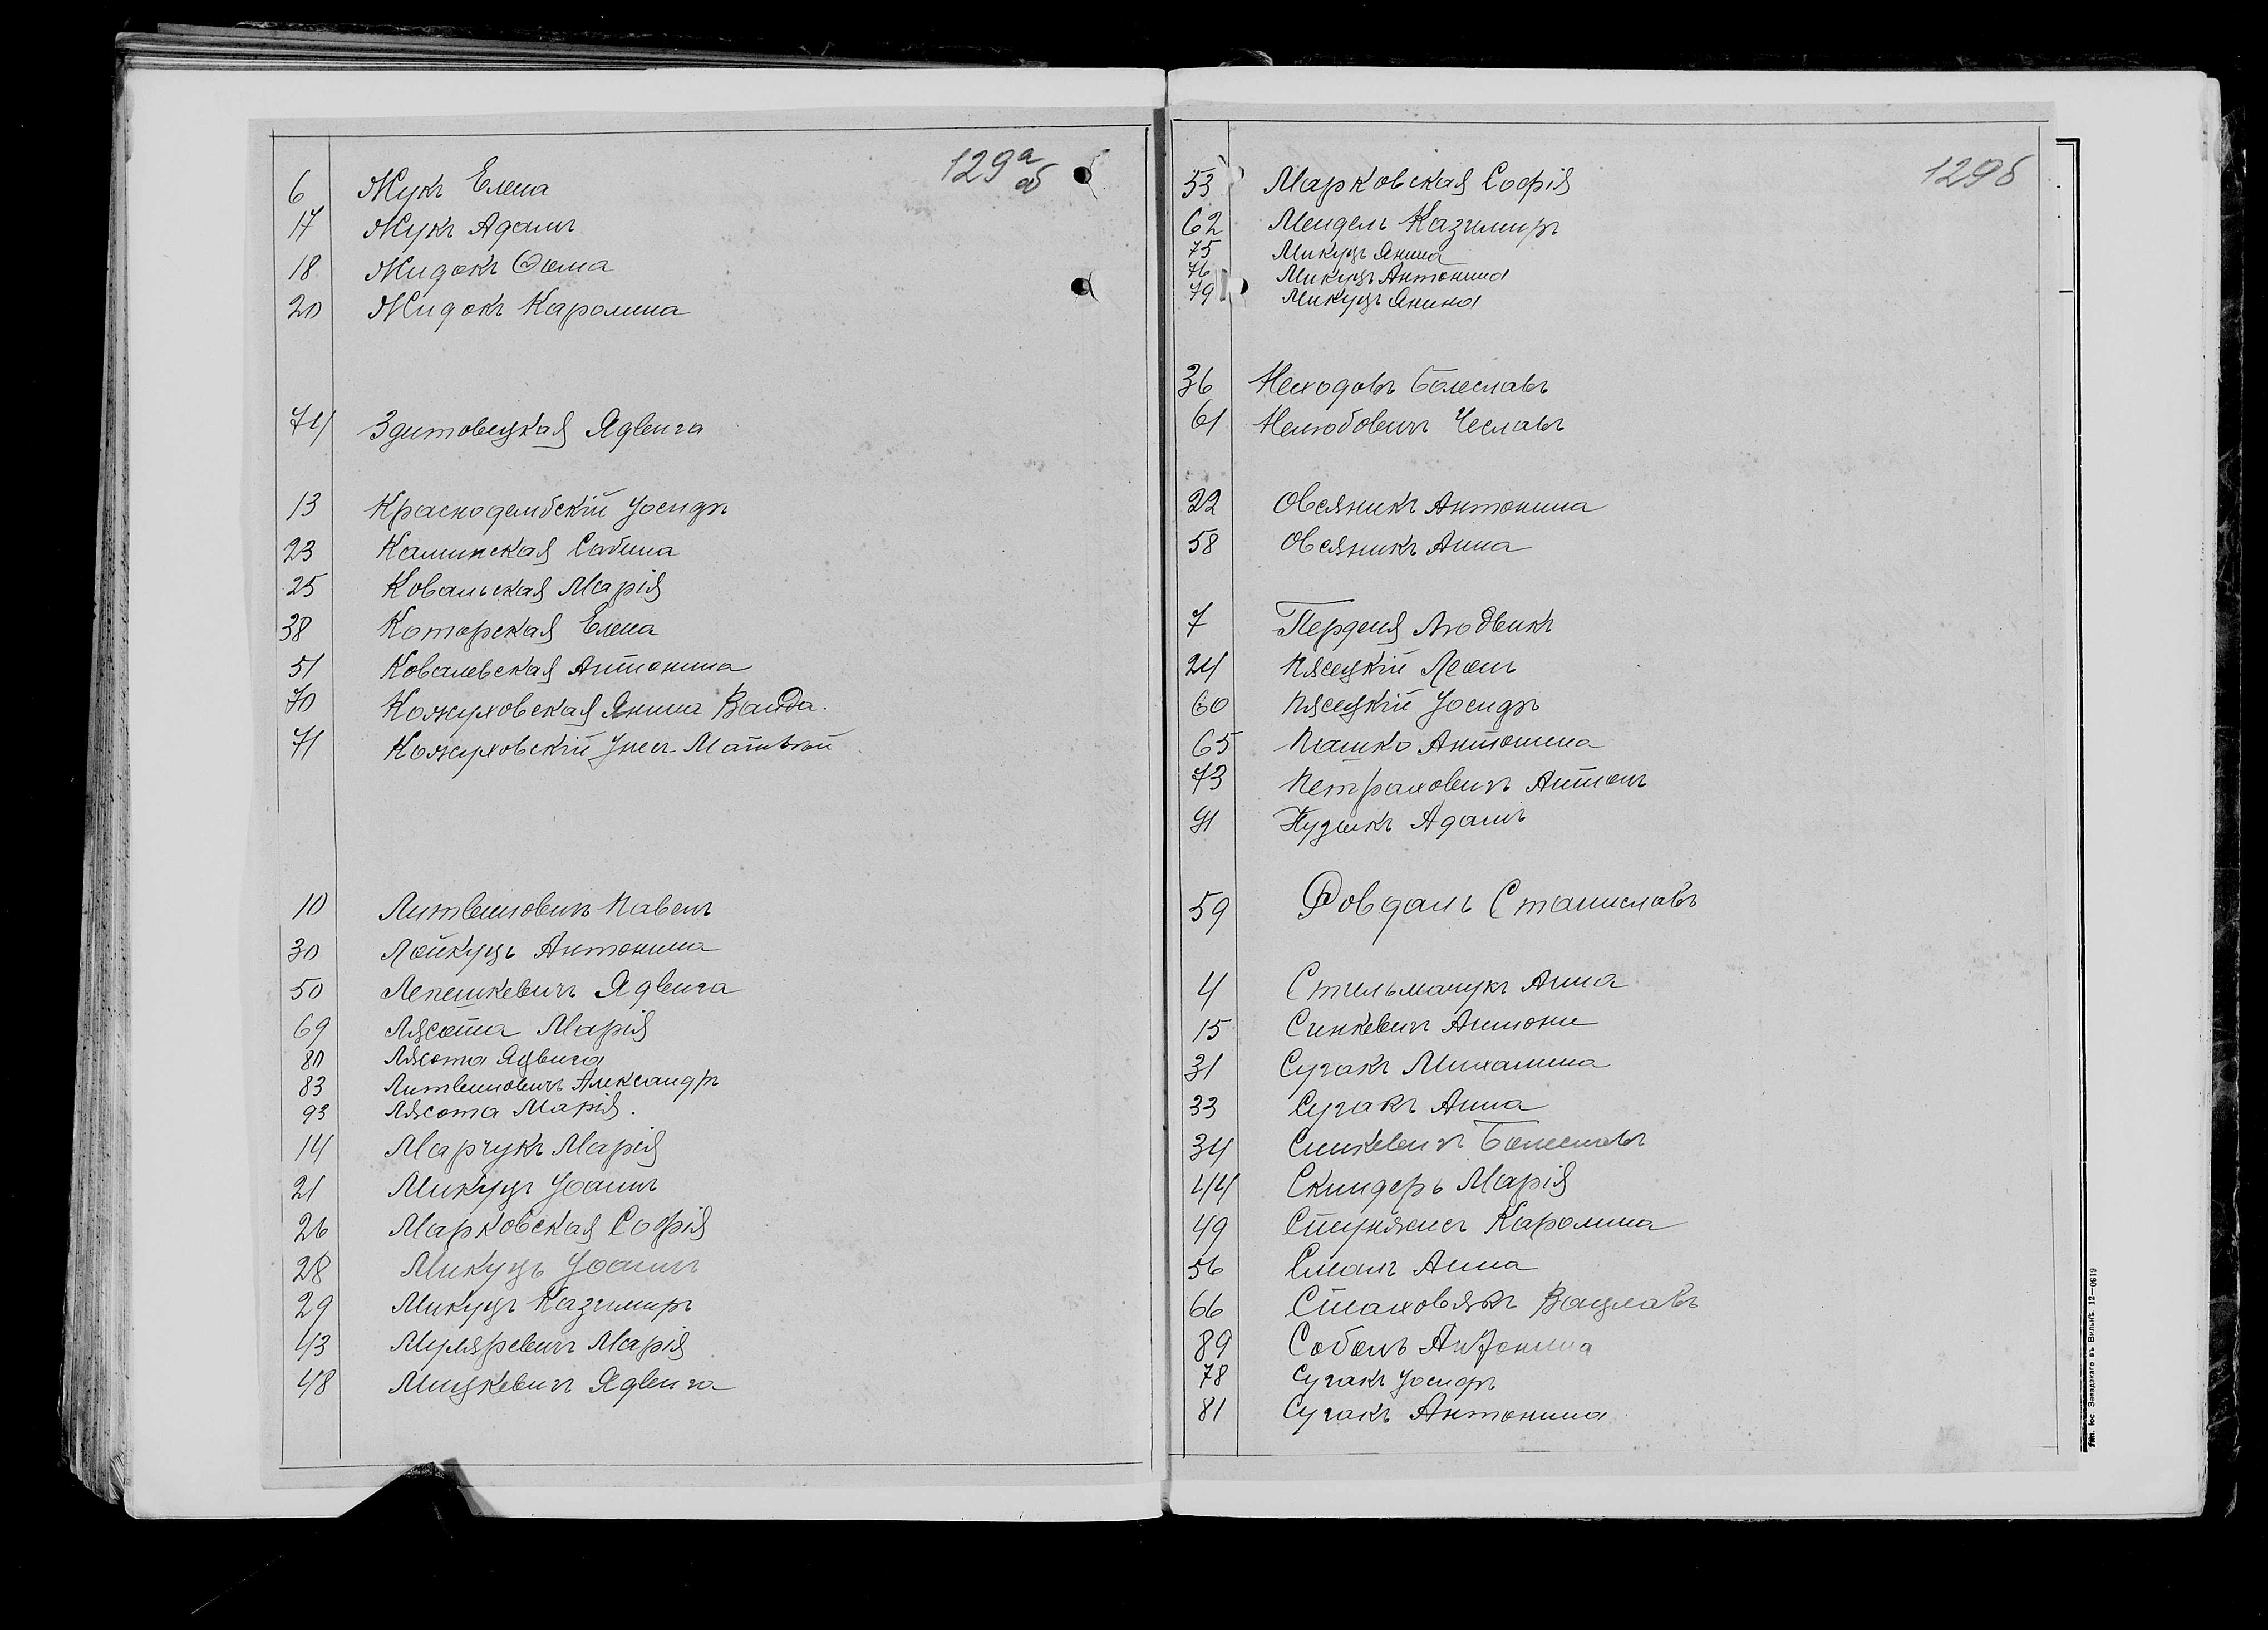 129 а об
6 Жукъ Елена
17 Жукъ Адамъ
18 Жидокъ Ѳома
20 Жидокъ Каролина
74 Здитовецкая Ядвига
13 Краснодембскій Іосифъ
23 Каминская Сабина
25 Ковальская Марія
38 Которская Елена
51 Ковалевская Антонина
70 Кожуховская Янина Ванда.
71 Кожуховскій Матвѣй
10 Литвиновичъ Павелъ
30 Лойкуць Антонина
50 Лепешкевичъ Ядвига
69 Лясота Марія
80 Лясота Ядвига
83 Литвиновичъ Александръ
93 Лясота Марія.
14 Марчукъ Марія
21 Микуць Іоаннъ
26 Марковская Софія
28 Микуць Іоаннъ
29 Микуць Казимиръ
43 Муляревичъ Марія
48 Мицкевичъ Ядвига
129б
53 Марковская Софія
62 Мендель Казимиръ
75 Микуць Янина
76 Микуць Антонина
79 Микуць Янина
36 Неходовъ Болеславъ
61 Нелюбовичъ Чеславъ
22 Овсяникъ Антонина
58 Овсяникъ Анна
7 Перденя Людвикъ
24 Пясецкій Леонъ
60 Пясецкій Іосифъ
65 Пашко Антонина
73 Петраховичъ Антонъ
91 Пузыкъ Адамъ
59 Ровдаль Станиславъ
4 Стельмачукъ Анна
15 Синкевичъ Антони
31 Сугакъ Михалина
33 Сугакъ Анна
34 Синкевичъ Болеславъ
44 Скиндеръ Марія
49 Каролина
56 Анна
66 Стаховякъ Вацлавъ
89 Соболь Антонина
78 Сугакъ Іосифъ
81 Сугакъ Антонина
Тип. Іос. Завадзкаго въ Вильнѣ. 12—0619